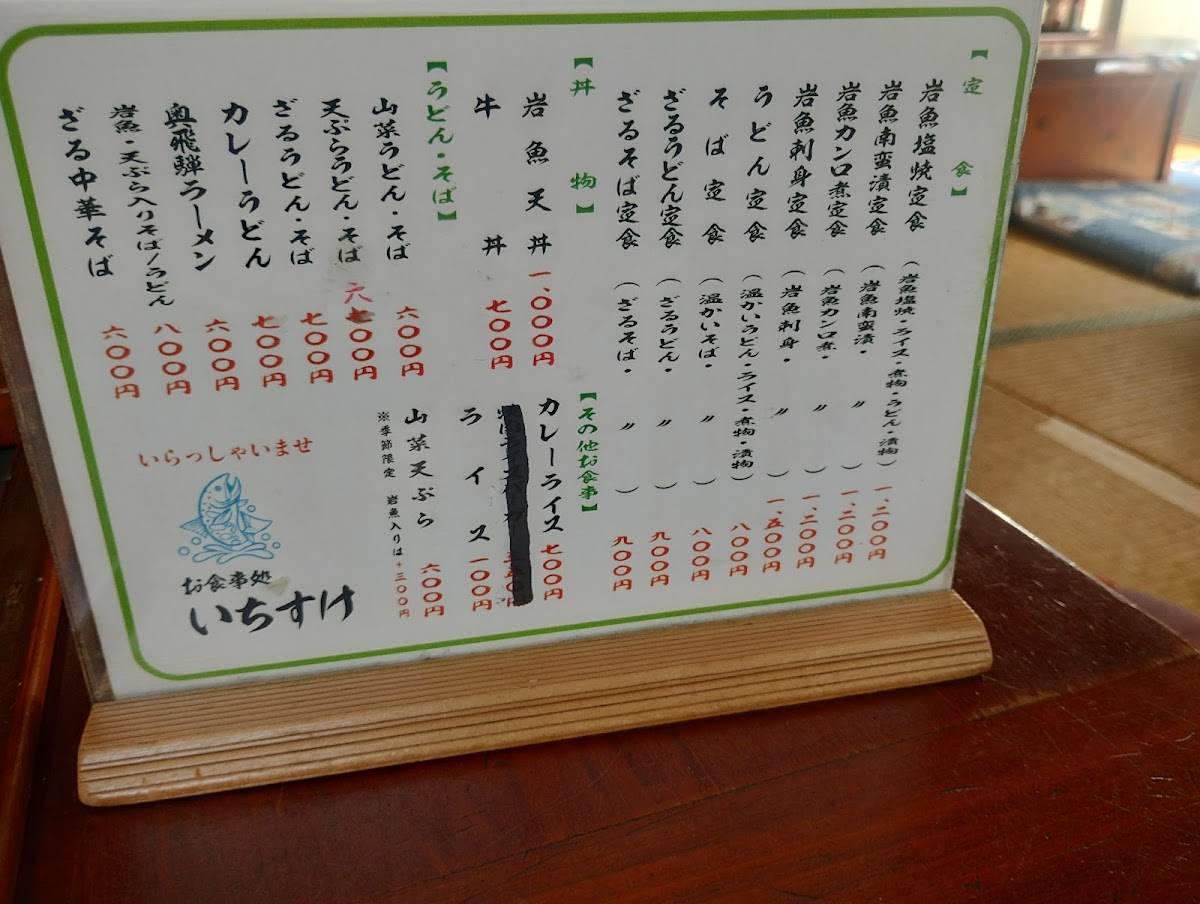 【定食】
岩魚塩焼定食（岩魚塩焼・ライス・煮物・うどん・漬物）一、二〇〇円
岩魚南蛮漬定食（岩魚南蛮漬・〃）一、二〇〇円
岩魚カンロ煮定食（岩魚カンロ煮・〃）一、二〇〇円
岩魚刺身定食（岩魚刺身・〃）一、五〇〇円
うどん定食（温かいうどん・ライス・煮物・漬物）八〇〇円
そば定食（温かいそば・〃）八〇〇円
ざるうどん定食（ざるうどん・〃）九〇〇円
ざるそば定食（ざるそば・〃）九〇〇円
【丼物】
岩魚天丼 一、〇〇〇円
牛丼 七〇〇円
【その他お食事】
カレーライス 七〇〇円
ライス 一〇〇円
山菜天ぷら 六〇〇円
※季節限定 岩魚入りは＋三〇〇円
【うどん・そば】
山菜うどん・そば 六〇〇円
天ぷらうどん・そば 六〇〇円
ざるうどん・そば 七〇〇円
カレーうどん 七〇〇円
奥飛騨ラーメン 六〇〇円
岩魚・天ぷら入りそば/うどん 八〇〇円
ざる中華そば 六〇〇円
いらっしゃいませ
お食事処
いちすけ